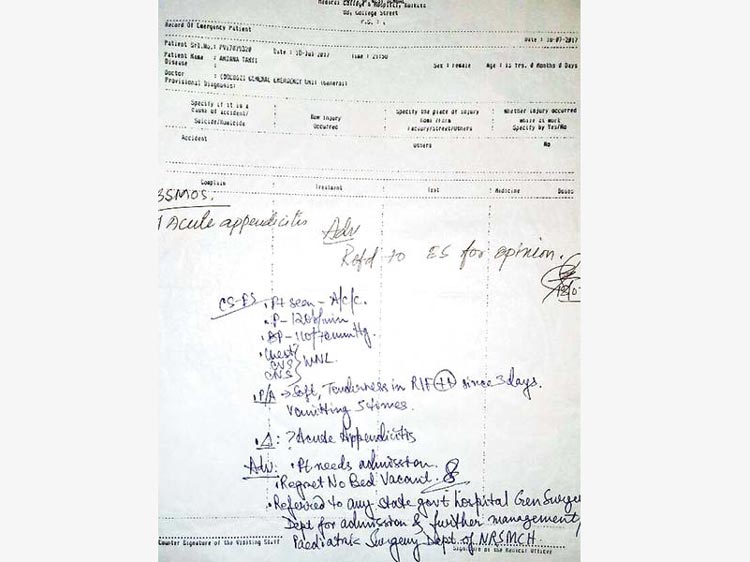 Medical College & Hospital, Kolkata
88, College Street
Record Of Emergency Patient
Date : 10-07-2017
Patient Srl.No.: Date : 10-Jul-2017 Time : 21:50
Patient Name : Sex : Female Age : 11 Yrs. 0 Months 0 Days
Disease :
Doctor : GENERAL EMERGENCY UNIT (General)
Provisional Diagnosis:
Specify if it is a cause of accident/ Suicide/Homicide
How injury Occurred
Specify the place of injury Home /Farm Factory/Street/Others
Whether injury occurred while at work Specify by Yes/No
Accident Others No
Complain Treatment Test Medicine Doses
BSMOS.
Acute appendicitis
Adv
Refd to ES for opinion.
CS-ES • Pt seen - A/c/c.
• P - 120b/min
• BP - 110/70mmHg.
• Chest
CVS } WNL.
CNS
• P/A → Soft, Tenderness in RIF ++ since 3 days.
Vomitting 5 times.
• Δ : ? Acute Appendicitis
Adv: • Pt needs admission.
• Regret No Bed Vacant.
• Referred to any state govt hospital Gen Surgery
Dept for admission & further management/
Paediatric Surgery Dept. of NRSMCH.
Counter Signature of the Visiting Staff
Signature of the Medical Officer